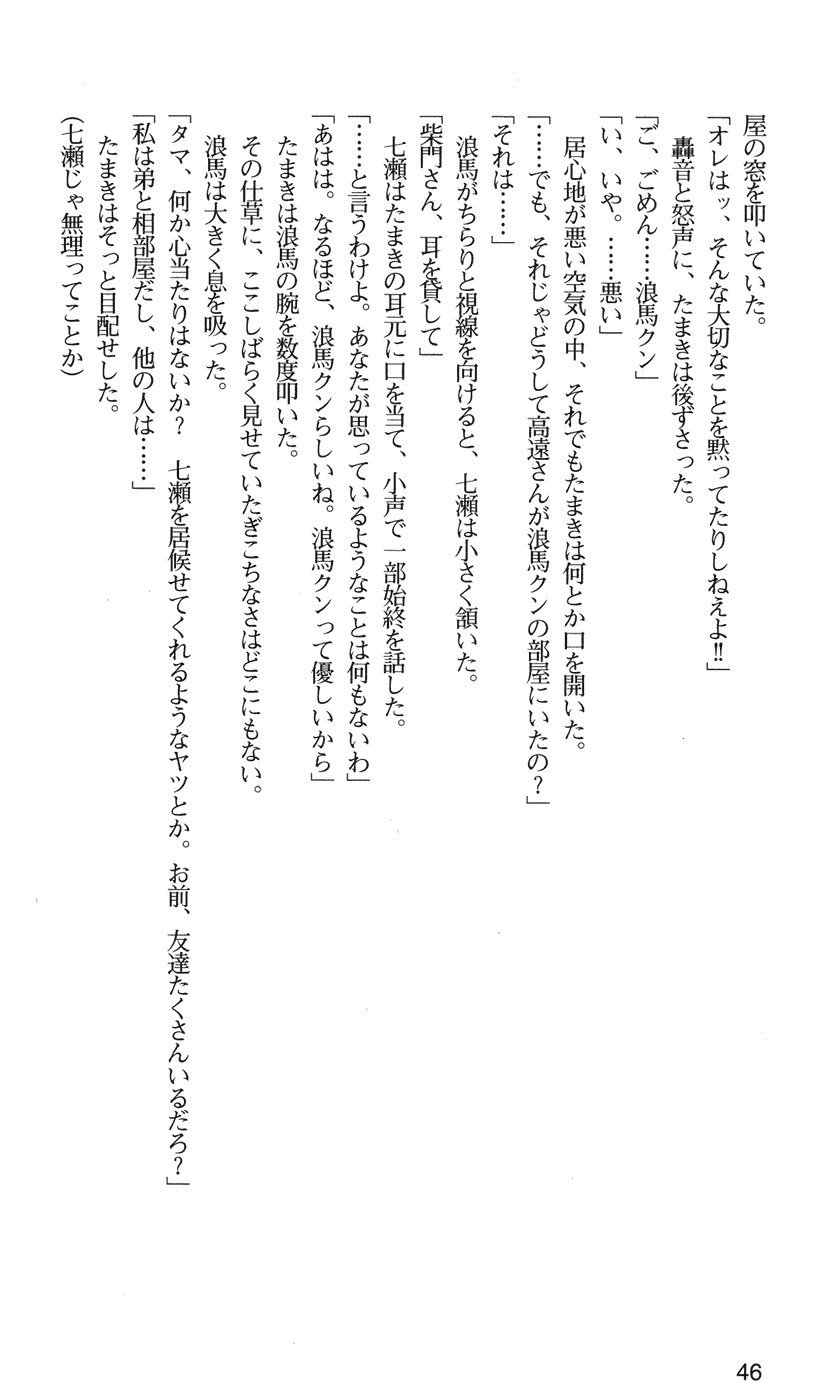 屋の窓を叩いていた。
「オレはッ、そんな大切なことを黙ってたりしねえよ!!」
　轟音と怒声に、たまきは後ずさった。
「ご、ごめん……浪馬クン」
「い、いや。……悪い」
　居心地が悪い空気の中、それでもたまきは何とか口を開いた。
「……でも、それじゃどうして高遠さんが浪馬クンの部屋にいたの？」
「それは……」
　浪馬がちらりと視線を向けると、七瀬は小さく頷いた。
「柴門さん、耳を貸して」
　七瀬はたまきの耳元に口を当て、小声で一部始終を話した。
「……と言うわけよ。あなたが思っているようなことは何もないわ」
「あはは。なるほど、浪馬クンらしいね。浪馬クンって優しいから」
　たまきは浪馬の腕を数度叩いた。
　その仕草に、ここしばらく見せていたぎこちなさはどこにもない。
　浪馬は大きく息を吸った。
「タマ、何か心当たりはないか？　七瀬を居候せてくれるようなヤツとか。お前、友達たくさんいるだろ？」
「私は弟と相部屋だし、他の人は……」
　たまきはそっと目配せした。
（七瀬じゃ無理ってことか）
46